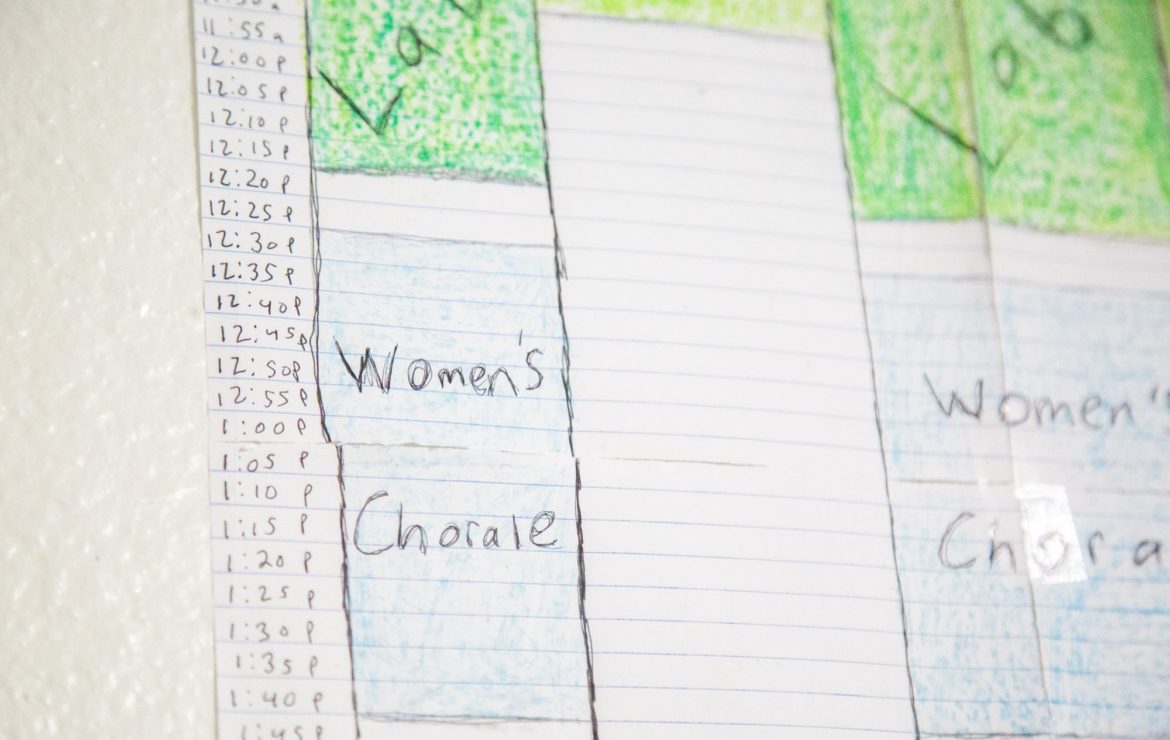 11:55a
12:00p
12:05p
12:10p
12:15p
12:20p
12:25p
12:30p
12:35p
12:40p
12:45p
12:50p
12:55p
1:00p
1:05 p
1:10 p
1:15 p
1:20 p
1:25 p
1:30 p
1:35 p
1:40 p
1:45p
Lab
Women's
Chorale
Lab
Women's
Chora